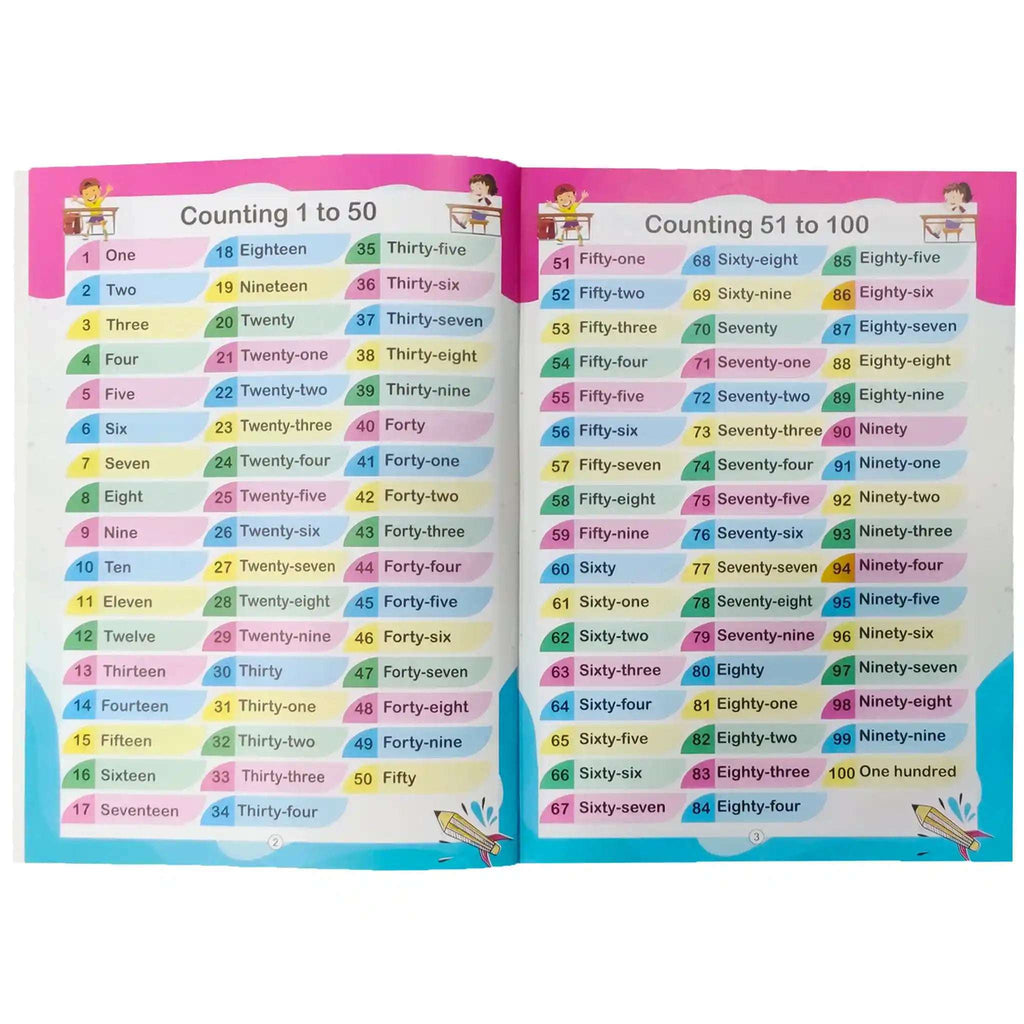 Counting 1 to 50
1 One
2 Two
3 Three
4 Four
5 Five
6 Six
7 Seven
8 Eight
9 Nine
10 Ten
11 Eleven
12 Twelve
13 Thirteen
14 Fourteen
15 Fifteen
16 Sixteen
17 Seventeen
18 Eighteen
19 Nineteen
20 Twenty
21 Twenty-one
22 Twenty-two
23 Twenty-three
24 Twenty-four
25 Twenty-five
26 Twenty-six
27 Twenty-seven
28 Twenty-eight
29 Twenty-nine
30 Thirty
31 Thirty-one
32 Thirty-two
33 Thirty-three
34 Thirty-four
35 Thirty-five
36 Thirty-six
37 Thirty-seven
38 Thirty-eight
39 Thirty-nine
40 Forty
41 Forty-one
42 Forty-two
43 Forty-three
44 Forty-four
45 Forty-five
46 Forty-six
47 Forty-seven
48 Forty-eight
49 Forty-nine
50 Fifty
2
Counting 51 to 100
51 Fifty-one
52 Fifty-two
53 Fifty-three
54 Fifty-four
55 Fifty-five
56 Fifty-six
57 Fifty-seven
58 Fifty-eight
59 Fifty-nine
60 Sixty
61 Sixty-one
62 Sixty-two
63 Sixty-three
64 Sixty-four
65 Sixty-five
66 Sixty-six
67 Sixty-seven
68 Sixty-eight
69 Sixty-nine
70 Seventy
71 Seventy-one
72 Seventy-two
73 Seventy-three
74 Seventy-four
75 Seventy-five
76 Seventy-six
77 Seventy-seven
78 Seventy-eight
79 Seventy-nine
80 Eighty
81 Eighty-one
82 Eighty-two
83 Eighty-three
84 Eighty-four
85 Eighty-five
86 Eighty-six
87 Eighty-seven
88 Eighty-eight
89 Eighty-nine
90 Ninety
91 Ninety-one
92 Ninety-two
93 Ninety-three
94 Ninety-four
95 Ninety-five
96 Ninety-six
97 Ninety-seven
98 Ninety-eight
99 Ninety-nine
100 One hundred
3